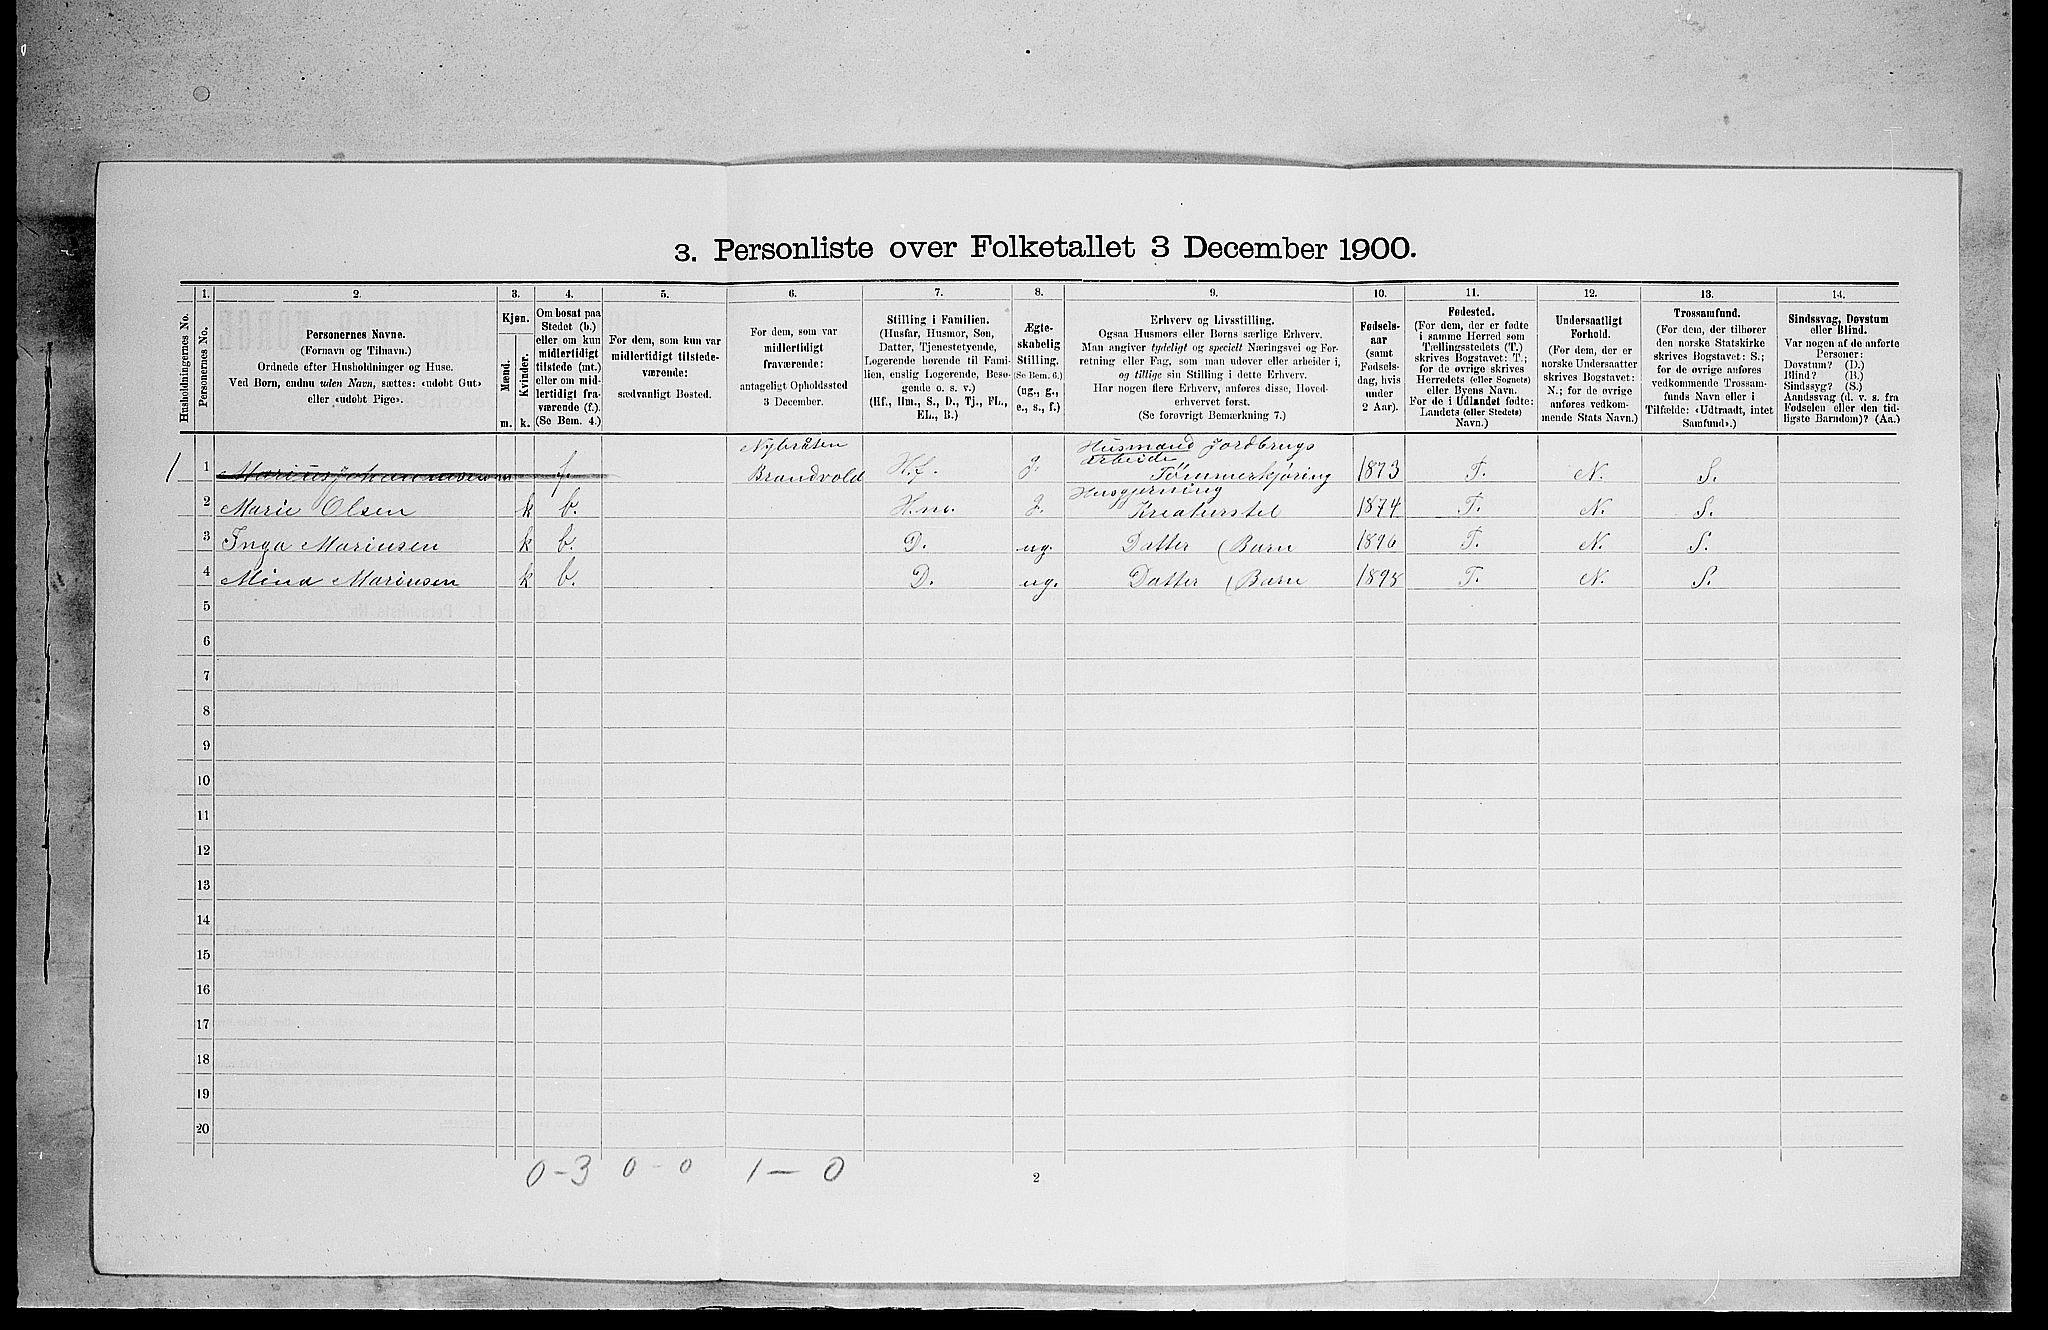 3. Personliste over Folketallet 3 December 1900.
Husholdningernes No.
1.
Personernes No.
2.
Personernes Navne.
(Fornavn og Tilnavn.)
Ordnede efter Husholdninger og Huse.
Ved Børn, endnu uden Navn, sættes: «udøbt Gut»
eller «udøbt Pige».
3.
Kjøn.
Mænd.
Kvinder.
m. k.
4.
Om bosat paa
Stedet (b.)
eller om kun
midlertidigt
tilstede (mt.)
eller om mid-
lertidigt fra-
værende (f.).
(Se Bem. 4.)
5.
For dem, som kun var
midlertidigt tilstede-
værende:
sædvanligt Bosted.
6.
For dem, som var
midlertidigt
fraværende:
antageligt Opholdssted
3 December.
7.
Stilling i Familien.
(Husfar, Husmor, Søn,
Datter, Tjenestetyende,
Logerende hørende til Fami-
lien, enslig Logerende, Besø-
gende o. s. v.)
(Hf., Hm., S., D., Tj., FL.,
EL., B.)
8.
Ægte-
skabelig
Stilling.
(Se Bem. 6.)
(ug., g.,
e., s., f.)
9.
Erhverv og Livsstilling.
Ogsaa Husmors eller Børns særlige Erhverv.
Man angiver tydeligt og specielt Næringsvei og For-
retning eller Fag, som man udøver eller arbeider i,
og tillige sin Stilling i dette Erhverv.
Har nogen flere Erhverv, anføres disse, Hoved-
erhvervet først.
(Se forøvrigt Bemærkning 7.)
10.
Fødsels-
aar
(samt
Fødsels-
dag, hvis
under
2 Aar).
11.
Fødested.
(For dem, der er fødte
i samme Herred som
Tællingsstedets (T.)
skrives Bogstavet: T.;
for de øvrige skrives
Herredets (eller Sognets)
eller Byens Navn.
For de i Udlandet fødte:
Landets (eller Stedets)
Navn.)
12.
Undersaatligt
Forhold.
(For dem, der er
norske Undersaatter
skrives Bogstavet:
N.; for de øvrige
anføres vedkom-
mende Stats Navn.)
13.
Trossamfund.
(For dem, der tilhører
den norske Statskirke
skrives Bogstavet: S.;
for de øvrige anføres
vedkommende Trossam-
funds Navn eller i
Tilfælde: «Udtraadt, intet
Samfund».)
14.
Sindssvag, Døvstum
eller Blind.
Var nogen af de anførte
Personer:
Døvstum? (D.)
Blind? (B.)
Sindssyg? (S.)
Aandssvag (d. v. s. fra
Fødselen eller den tid-
ligste Barndom)? (Aa.)
Nybråten Husmand Jordbrugs
arbeide
1 1 Marius Johannesen m f Brandvold H.f. g. Tømmerkjøring 1873 T. N. S.
Husgjerning
2 Marie Olsen k b. H.m. g. Kreaturstel 1874 T. N. S.
3 Inga Mariusen k b. D. ug. Datter (Barn 1896 T. N. S.
4 Mina Mariusen k b. D. ug. Datter (Barn 1898 T. N. S.
5
6
7
8
9
10
11
12
13
14
15
16
17
18
19
20
0-3 0-0 1-0
2